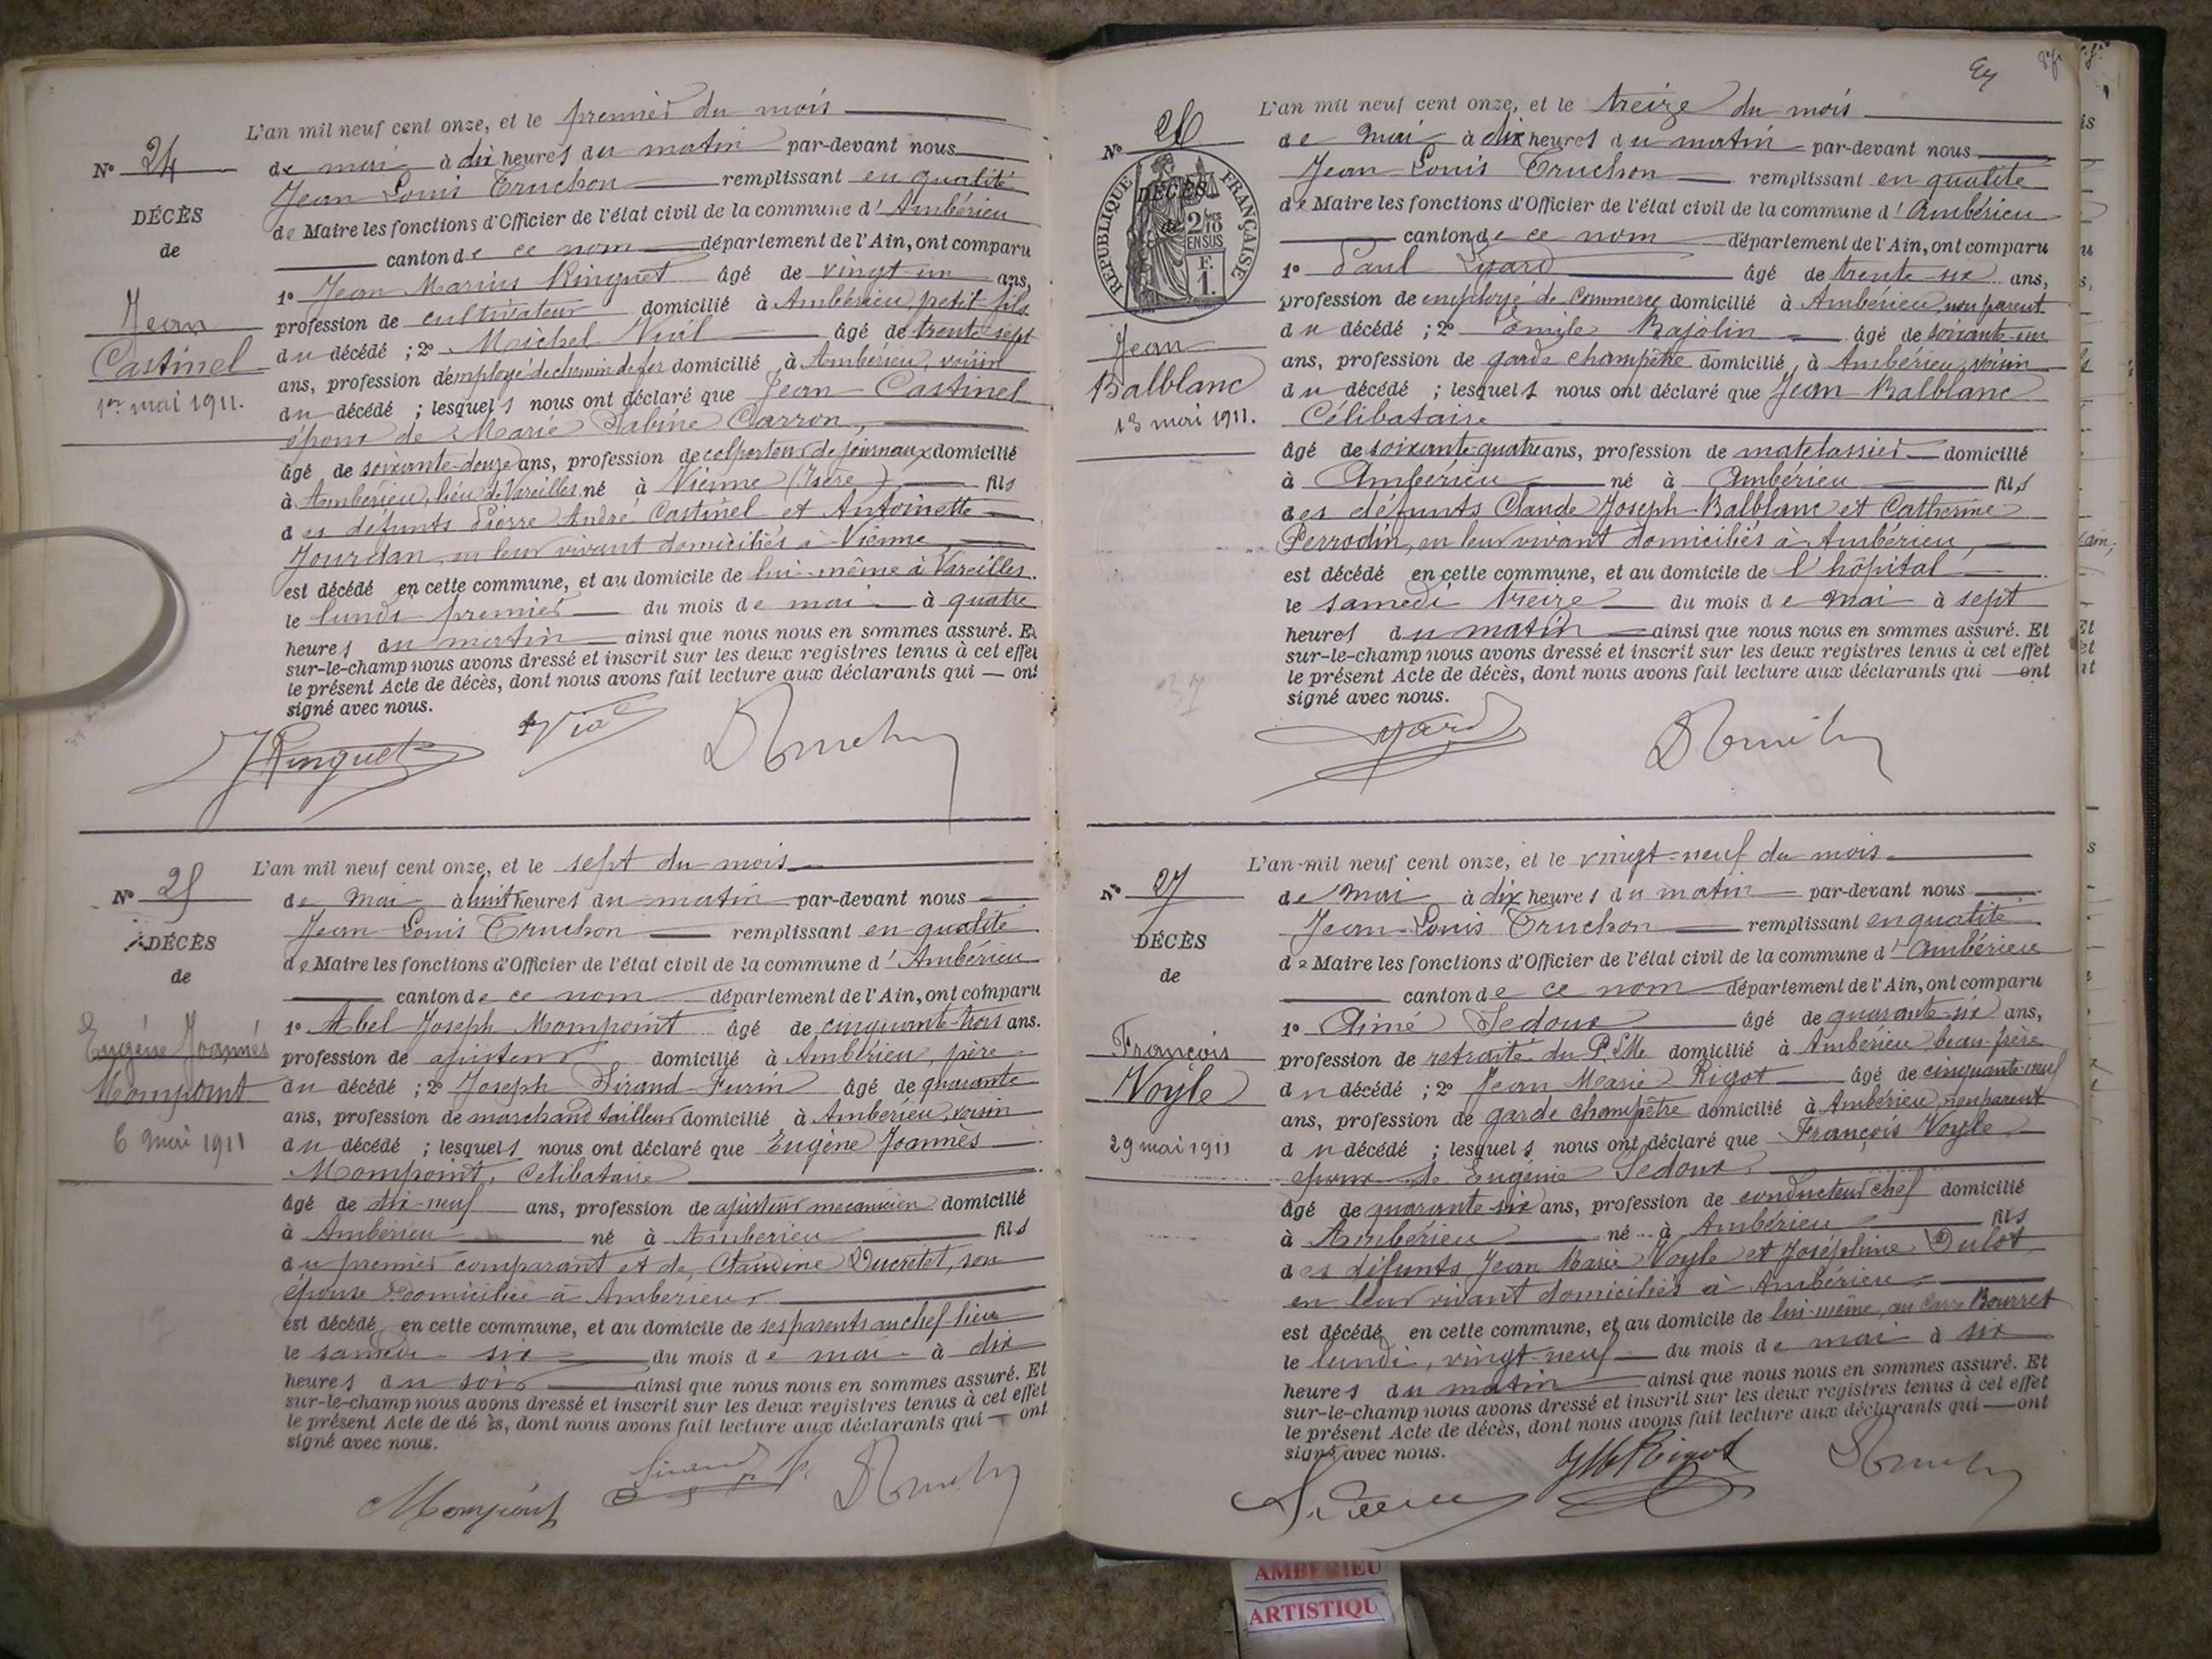 L'an mil neuf cent onze, et le premier du mois
N° 24
de mai à dix heures du matin par-devant nous
Jean Louis Truchon remplissant en qualité
DÉCÈS
de Maire les fonctions d'Officier de l'état civil de la commune d'Ambérieu
de
canton de ce nom département de l'Ain, ont comparu
1° Jean Marius Ringuet âgé de vingt-un ans,
Jean
profession de cultivateur domicilié à Ambérieu, petit-fils
Castinel
du décédé ; 2° Michel Vial âgé de trente-sept
ans, profession d'employé de chemin de fer domicilié à Ambérieu, voisin
1er mai 1911.
du décédé ; lesquels nous ont déclaré que Jean Castinel
époux de Marie Sabine Carron,
âgé de soixante-douze ans, profession de colporteur de journaux domicilié
à Ambérieu, lieu de Vareilles né à Vienne (Isère) fils
des défunts Pierre André Castinel et Antoinette
Jourdan, en leur vivant domiciliés à Vienne,
est décédé en cette commune, et au domicile de lui-même à Vareilles.
le lundi premier du mois de mai à quatre
heures du matin ainsi que nous nous en sommes assuré. Et
sur-le-champ nous avons dressé et inscrit sur les deux registres tenus à cet effet
le présent Acte de décès, dont nous avons fait lecture aux déclarants qui — ont
signé avec nous.
J Ringuet Vial Truchon
L'an mil neuf cent onze, et le sept du mois
N° 25
de mai à huit heures du matin par-devant nous
Jean Louis Truchon remplissant en qualité
DÉCÈS
de Maire les fonctions d'Officier de l'état civil de la commune d'Ambérieu
de
canton de ce nom département de l'Ain, ont comparu
1° Abel Joseph Mompoint âgé de cinquante-trois ans.
Eugène Joannès
profession de ajusteur domicilié à Ambérieu, père
Mompoint
du décédé ; 2° Joseph Sirand-Furin âgé de quarante
ans, profession de marchand tailleur domicilié à Ambérieu, voisin
6 mai 1911
du décédé ; lesquels nous ont déclaré que Eugène Joannès
Mompoint, Célibataire
âgé de dix-neuf ans, profession de ajusteur mécanicien domicilié
à Ambérieu né à Ambérieu fils
du premier comparant et de Claudine Ducretet, son
épouse domiciliée à Ambérieu,
est décédé en cette commune, et au domicile de ses parents au chef-lieu
le samedi six du mois de mai à dix
heures du soir ainsi que nous nous en sommes assuré. Et
sur-le-champ nous avons dressé et inscrit sur les deux registres tenus à cet effet
le présent Acte de dé ès, dont nous avons fait lecture aux déclarants qui — ont
signé avec nous.
Mompoint Sirand Truchon
L'an mil neuf cent onze, et le treize du mois
N° 26
de mai à dix heures du matin par-devant nous
Jean Louis Truchon remplissant en qualité
RÉPUBLIQUE FRANÇAISE
DÉCÈS
de
2/10 EN SUS
F. 1.
de Maire les fonctions d'Officier de l'état civil de la commune d'Ambérieu
canton de ce nom département de l'Ain, ont comparu
1° Paul Lyard âgé de trente-six ans,
profession de employé de commerce domicilié à Ambérieu, non parent
du décédé ; 2° Emile Bajolin âgé de soixante-un
Jean
ans, profession de garde champêtre domicilié à Ambérieu, voisin
Balblanc
du décédé ; lesquels nous ont déclaré que Jean Balblanc
13 mai 1911.
Célibataire
âgé de soixante-quatre ans, profession de matelassier domicilié
à Ambérieu né à Ambérieu fils
des défunts Claude Joseph Balblanc et Catherine
Perrodin, en leur vivant domiciliés à Ambérieu,
est décédé en cette commune, et au domicile de l'hôpital
le samedi treize du mois de mai à sept
heures du matin ainsi que nous nous en sommes assuré. Et
sur-le-champ nous avons dressé et inscrit sur les deux registres tenus à cet effet
le présent Acte de décès, dont nous avons fait lecture aux déclarants qui — ont
signé avec nous.
Lyard Truchon
L'an mil neuf cent onze, et le vingt-neuf du mois
N° 27
de mai à dix heures du matin par-devant nous
Jean Louis Truchon remplissant en qualité
DÉCÈS
de Maire les fonctions d'Officier de l'état civil de la commune d'Ambérieu
de
canton de ce nom département de l'Ain, ont comparu
1° Aimé Sedoux âgé de quarante-six ans,
François
profession de retraité du P.L.M. domicilié à Ambérieu, beau-frère
Voyle
du décédé ; 2° Jean Marie Rigot âgé de cinquante-neuf
ans, profession de garde champêtre domicilié à Ambérieu, non parent
29 mai 1911
du décédé ; lesquels nous ont déclaré que François Voyle
époux de Eugénie Sedoux,
âgé de quarante-six ans, profession de conducteur chef domicilié
à Ambérieu né à Ambérieu fils
des défunts Jean Marie Voyle et Joséphine Dulot
en leur vivant domiciliés à Ambérieu
est décédé en cette commune, et au domicile de lui-même, au Carre Bourret
le lundi, vingt-neuf du mois de mai à six
heures du matin ainsi que nous nous en sommes assuré. Et
sur-le-champ nous avons dressé et inscrit sur les deux registres tenus à cet effet
le présent Acte de décès, dont nous avons fait lecture aux déclarants qui — ont
signé avec nous.
JM Rigot Truchon
AMBERIEU
ARTISTIQU